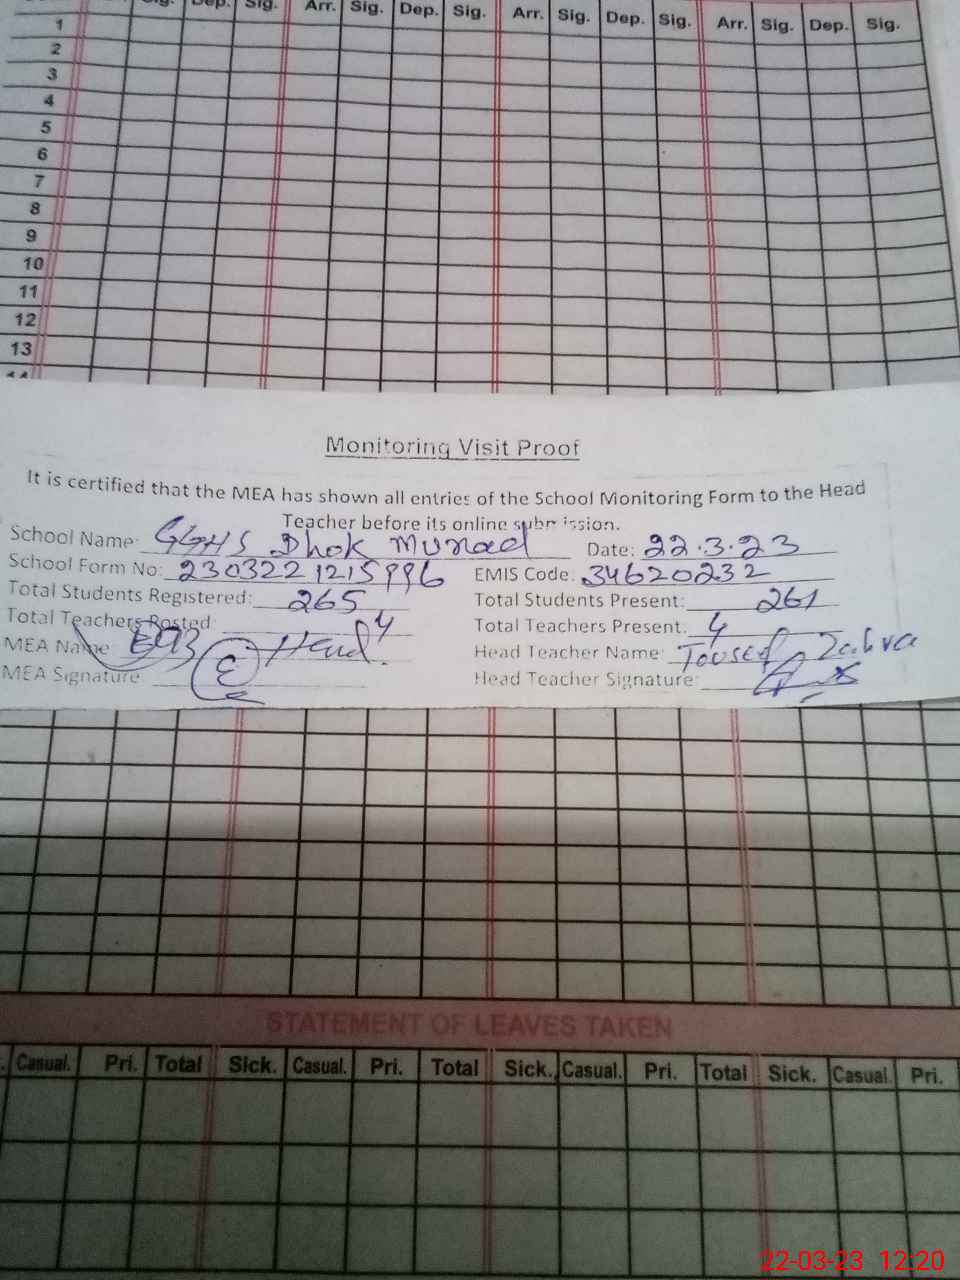 Sig. Dep. Sig. Arr. Sig. Dep. Sig. Arr. Sig. Dep. Sig. Arr. Sig. Dep. Sig.
1
2
3
4
5
6
7
8
9
10
11
12
13
14
Monitoring Visit Proof
It is certified that the MEA has shown all entries of the School Monitoring Form to the Head
Teacher before its online submission.
School Name: GGHS Dhok Murad Date: 22.3.23
School Form No: 2303221215996 EMIS Code: 34620232
Total Students Registered: 265 Total Students Present: 261
Total Teachers Posted: 4 Total Teachers Present: 4
MEA Name Head Teacher Name:
MEA Signature: Head Teacher Signature:
STATEMENT OF LEAVES TAKEN
Casual. Pri. Total Sick. Casual. Pri. Total Sick. Casual. Pri. Total Sick. Casual. Pri.
22-03-23 12:20